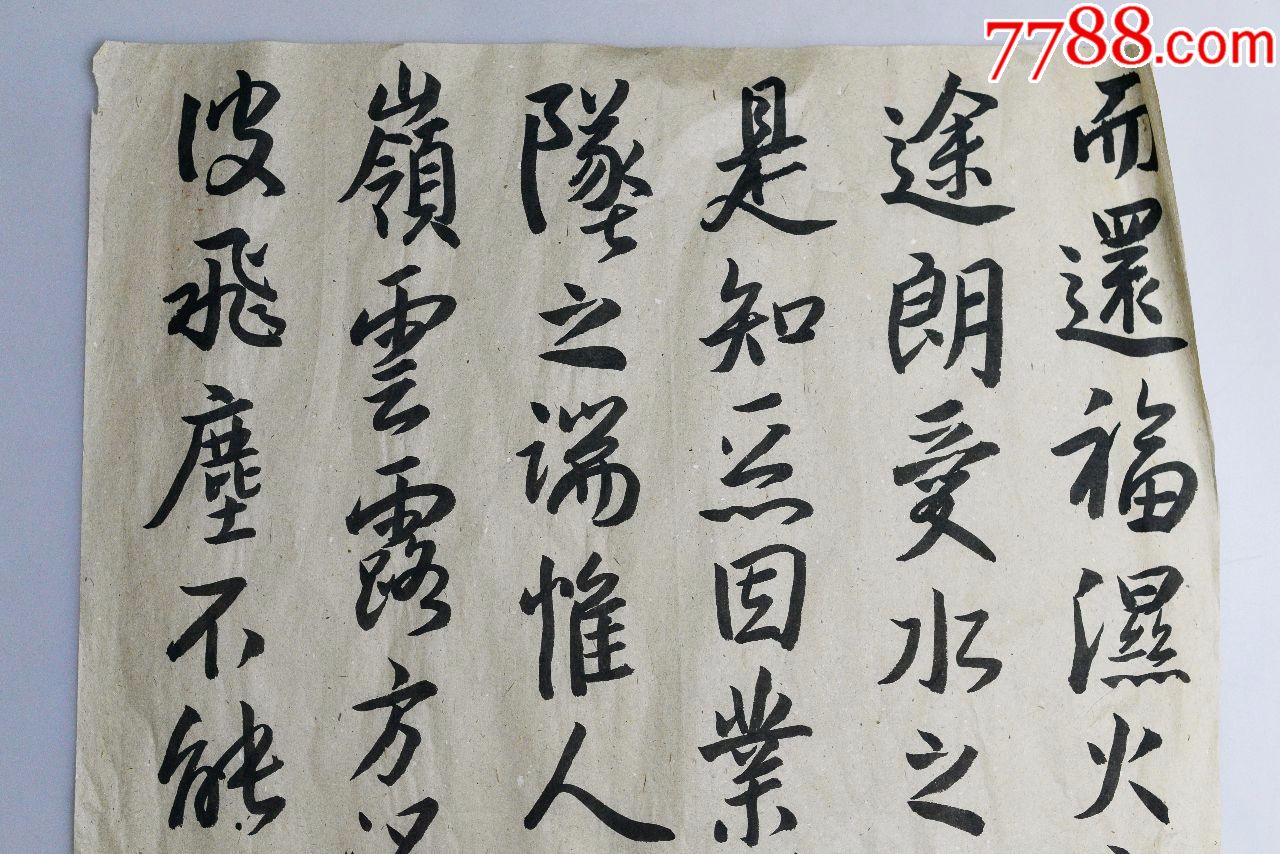 7788.com
而還福濕火
途朗愛水之
是知惡因業
墜之端惟人
嶺雲露方
波飛塵不能